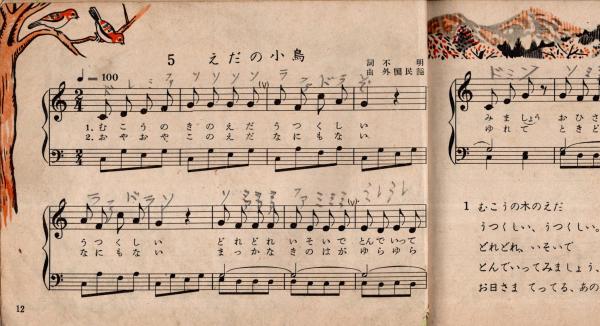 5 えだの小鳥
詞 不明
曲 外国民謡
♩=100
ド レ ミ ファ ソ ソ ソ ソ ラ ファ ド ラ ソ
1. むこうの きのえだ うつくしい
2. おやおや このえだ なにもない
ラ ファ ド ラ ソ ソ ミ ミ ミ ファ ミ ミ ミ ミ レ ミ レ
うつくしい どれどれ いそいで とんでいって
なにもない まっかな きのはが ゆらゆら
12
ド ミ ソ
みましょう おひさ
ゆれて ときど
1 むこうの木のえだ
うつくしい、うつくしい。
どれどれ、いそいで
とんでいってみましょう、
お日さま てってる、あの